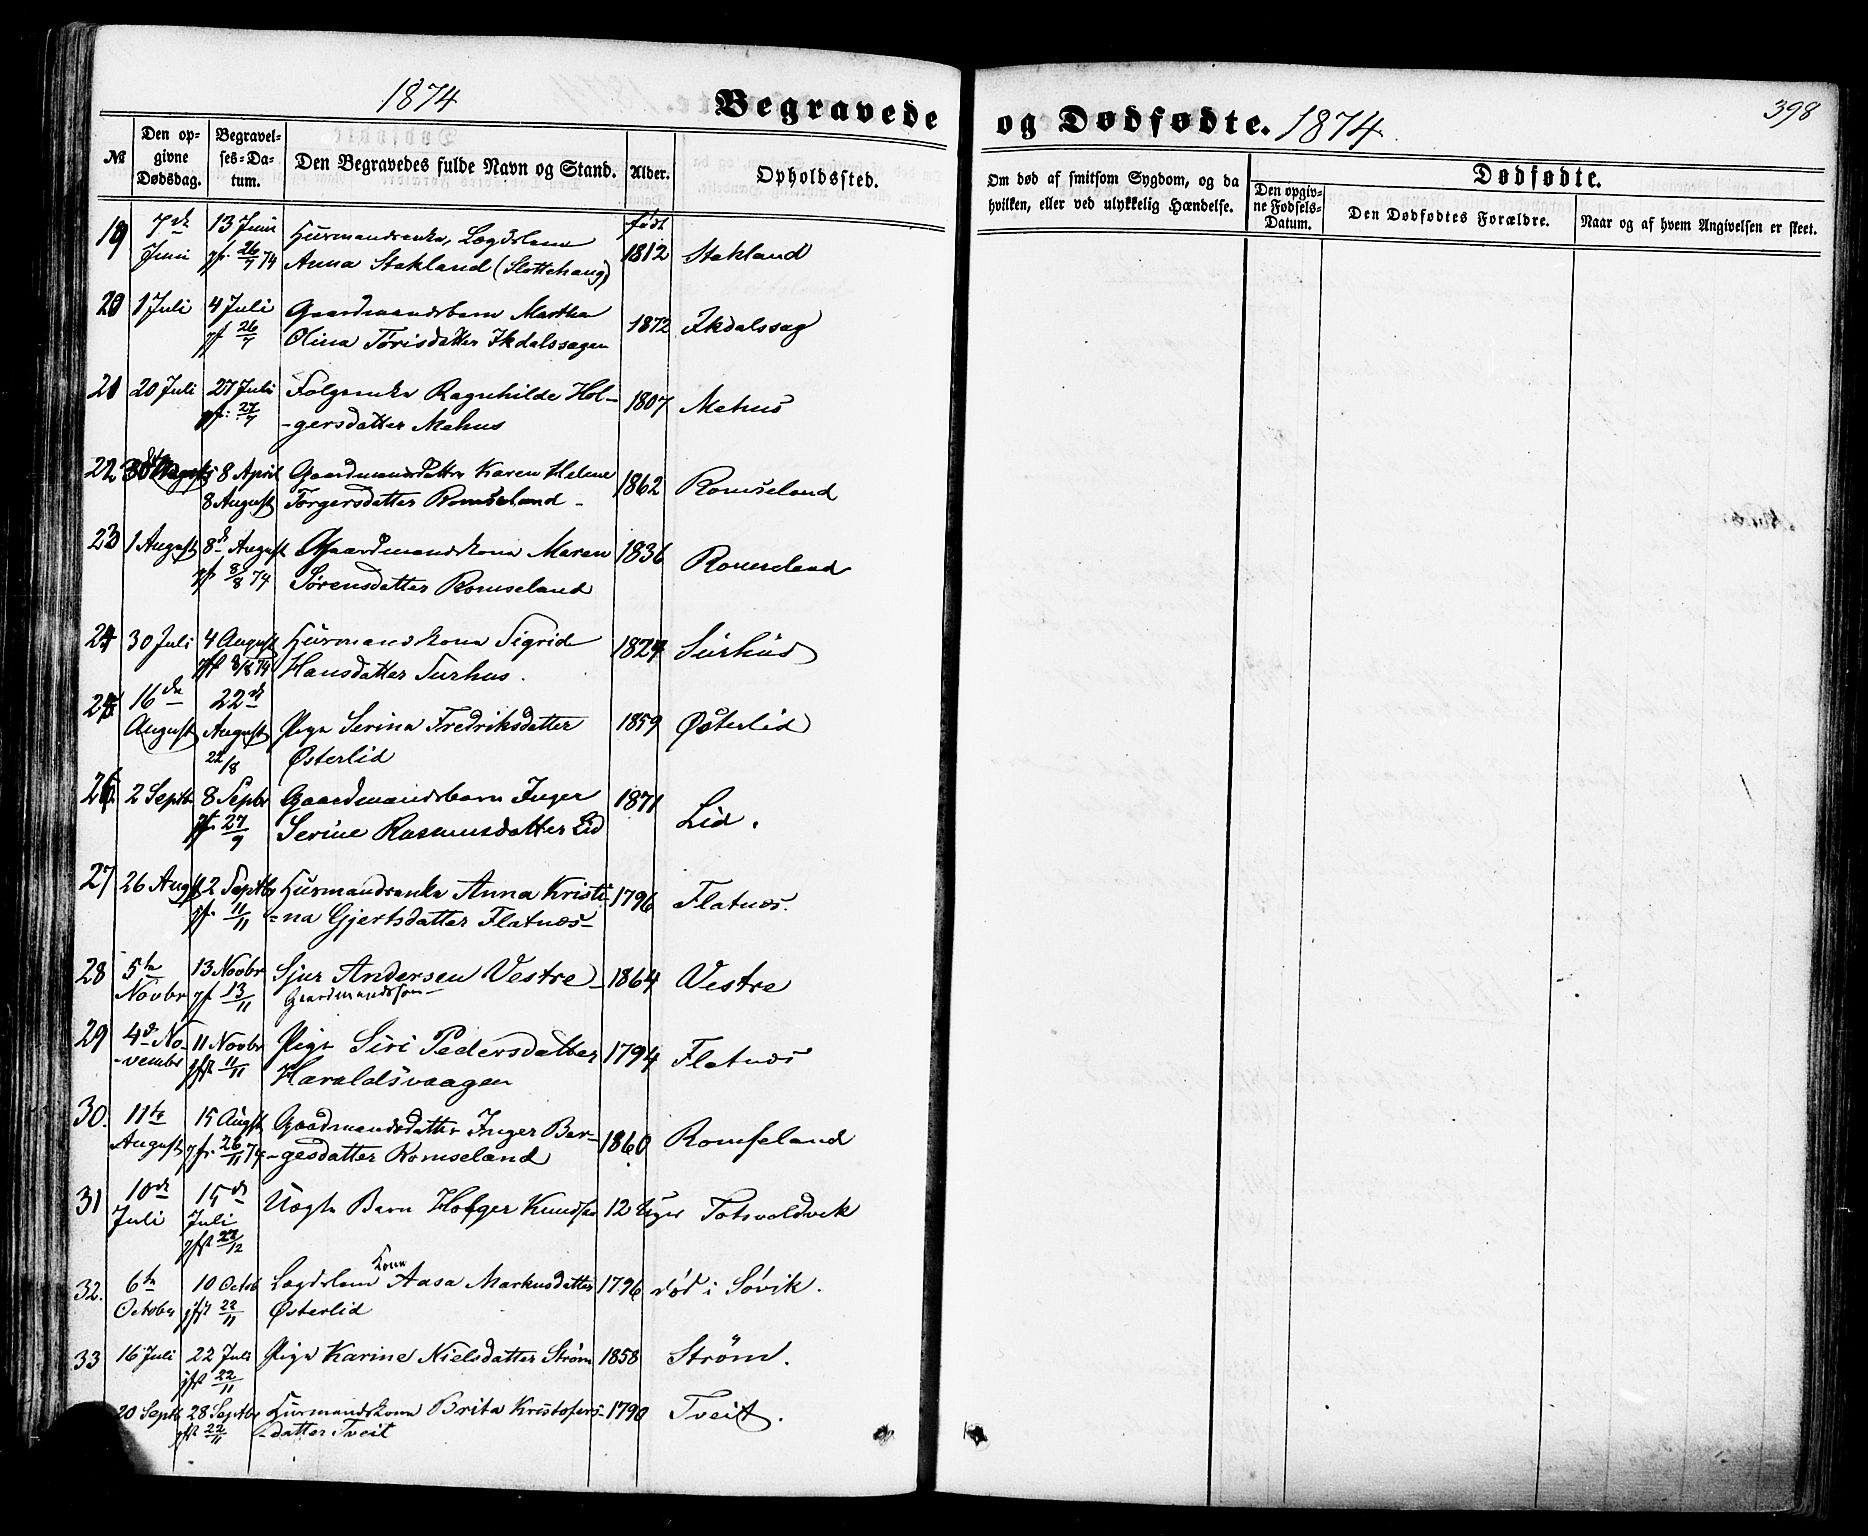 1874
Begravede og Dødfødte. 1874.
398
№
Den opgivne Dødsdag.
Begravelses-Datum.
Den Begravedes fulde Navn og Stand.
Alder.
Opholdssted.
Om død af smitsom Sygdom, og da hvilken, eller ved ulykkelig Hændelse.
Dødfødte.
Den opgivne Fødsels-Datum.
Den Dødfødtes Forældre.
Naar og af hvem Angivelsen er skeet.
19 7de Juni 13 Juni 26/7 74 Huusmandsenke, Lægdslem født 1812 Stakland
Anna Stakland (Slottehaug)
20 1 Juli 4 Juli 26/7 Gaardmandsbarn Martha 1872 Ikdalssag
Olina Torisdatter Ikdalssagen
21 20 Juli 27 Juli 27/7 Folgeenke Ragnhilde Hol- 1807 Mehus
-gersdatter Mehus
22 8 April Gaardmandsdatter Karen Helene 1862 Romseland
8 August Torgersdatter Romseland -
23 1 August 8de August 8/8 74 Gaardmandskone Maren 1836 Romseland
Sørensdatter Romseland
24 30 Juli 4 August 8/8 74 Huusmandskone Sigrid 1824 Surhus
Hansdatter Surhus.
25 16de August 22de August 22/8 Pige Serina Fredriksdatter 1859 Østerlid
Østerlid
26 2 Septbr 8 Sepbr 27/9 Gaardmandsbarn Inger 1871 Lid.
Serine Rasmusdatter Lid
27 26 Augst 2 Septbr 11/11 Huusmandsenke Anna Kristi- 1796 Flatnæs.
=na Gjertsdatter Flatnæs-
28 5te Novbr 13 Novbr 13/11 Sjur Andersen Vestre 1864 Vestre
Gaardmandssøn
29 4de No-vembr 11 Novbr 11/11 Pige Siri Pedersdatter 1794 Flatnæs
Haraldsvaagen
30. 11te August 15 Augst 26/11 74 Gaardmandsdatter Inger Bør- 1860 Romseland
-gesdatter Romseland
31 10de Juli 15de Juli 22/12 Uægte Barn Holger Knudsen 12 Uger Totsvoldvik
32. 6te Octobr 10 Octob 22/11 Lægdslem Kone Aasa Markusdatter 1796 død i Søvik.
Østerlid
33 16 Juli 22 Juli 22/11 Pige Karine Nielsdatter Strøm 1858 Strøm.
20 Septb 28 Septbr 22/11 Huusmandskone Brita Kristofers- 1790 Tveit.
-datter Tveit